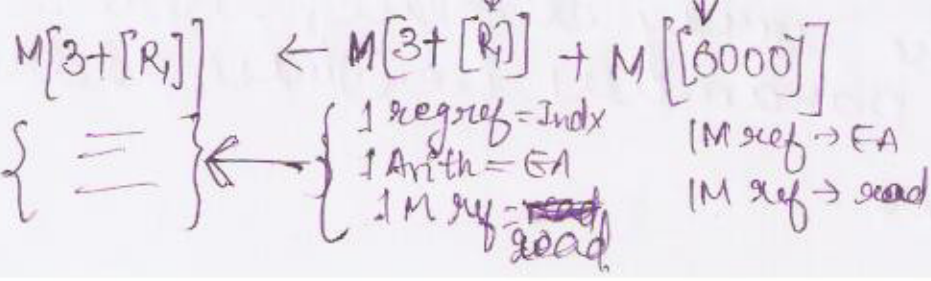 M[3+[R1]] ← M[3+[R1]] + M[[6000]]
1 reg ref = Indx
1 Arith = EA
1 M ref = read
1M ref → EA
1M ref → read